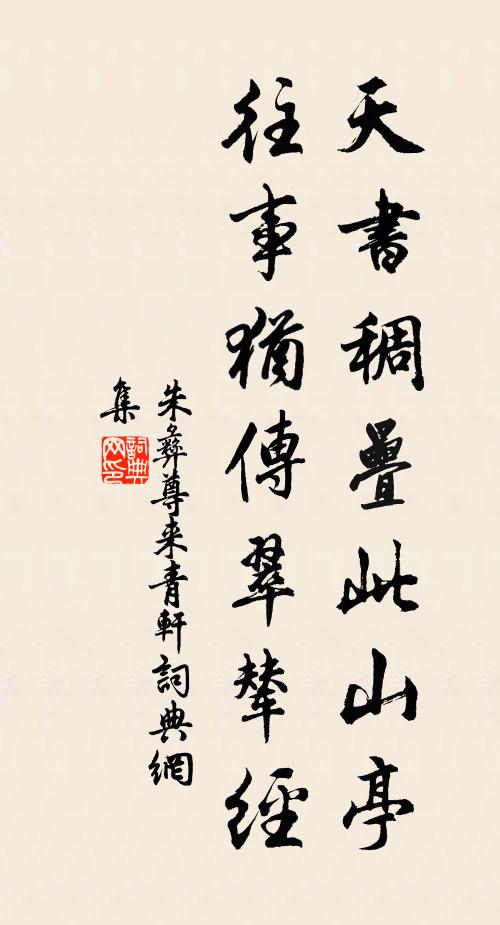 天書稠疊此山亭
往事猶傳翠輦經
朱彝尊来青軒詞典網
集
詞典
网印